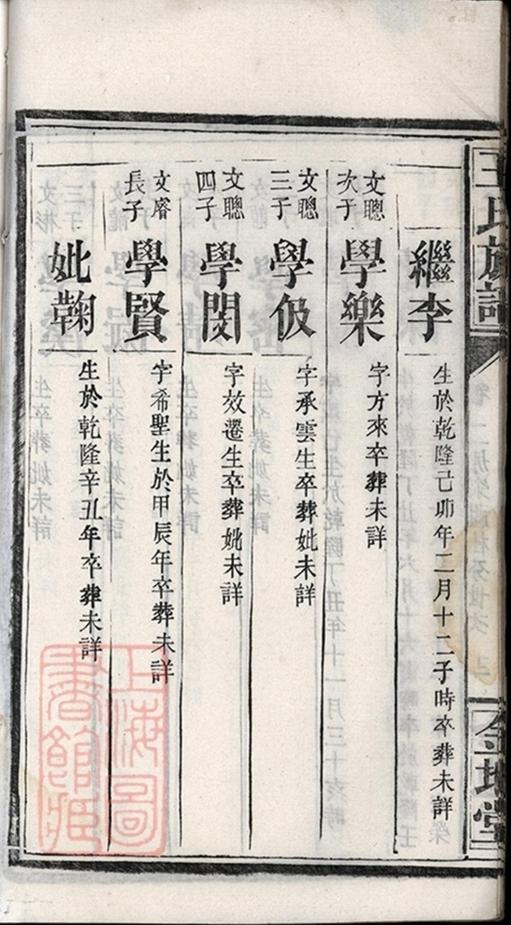 王氏族譜
繼李
生於乾隆己卯年二月十二子時卒葬未詳
文聰
次子
學樂
字方來卒葬未詳
文聰
三子
學伋
字承雲生卒葬妣未詳
文聰
四子
學閔
字效遷生卒葬妣未詳
文睿
長子
學賢
字希聖生於甲辰年卒葬未詳
妣鞠
生於乾隆辛丑年卒葬未詳
上海圖
書館藏